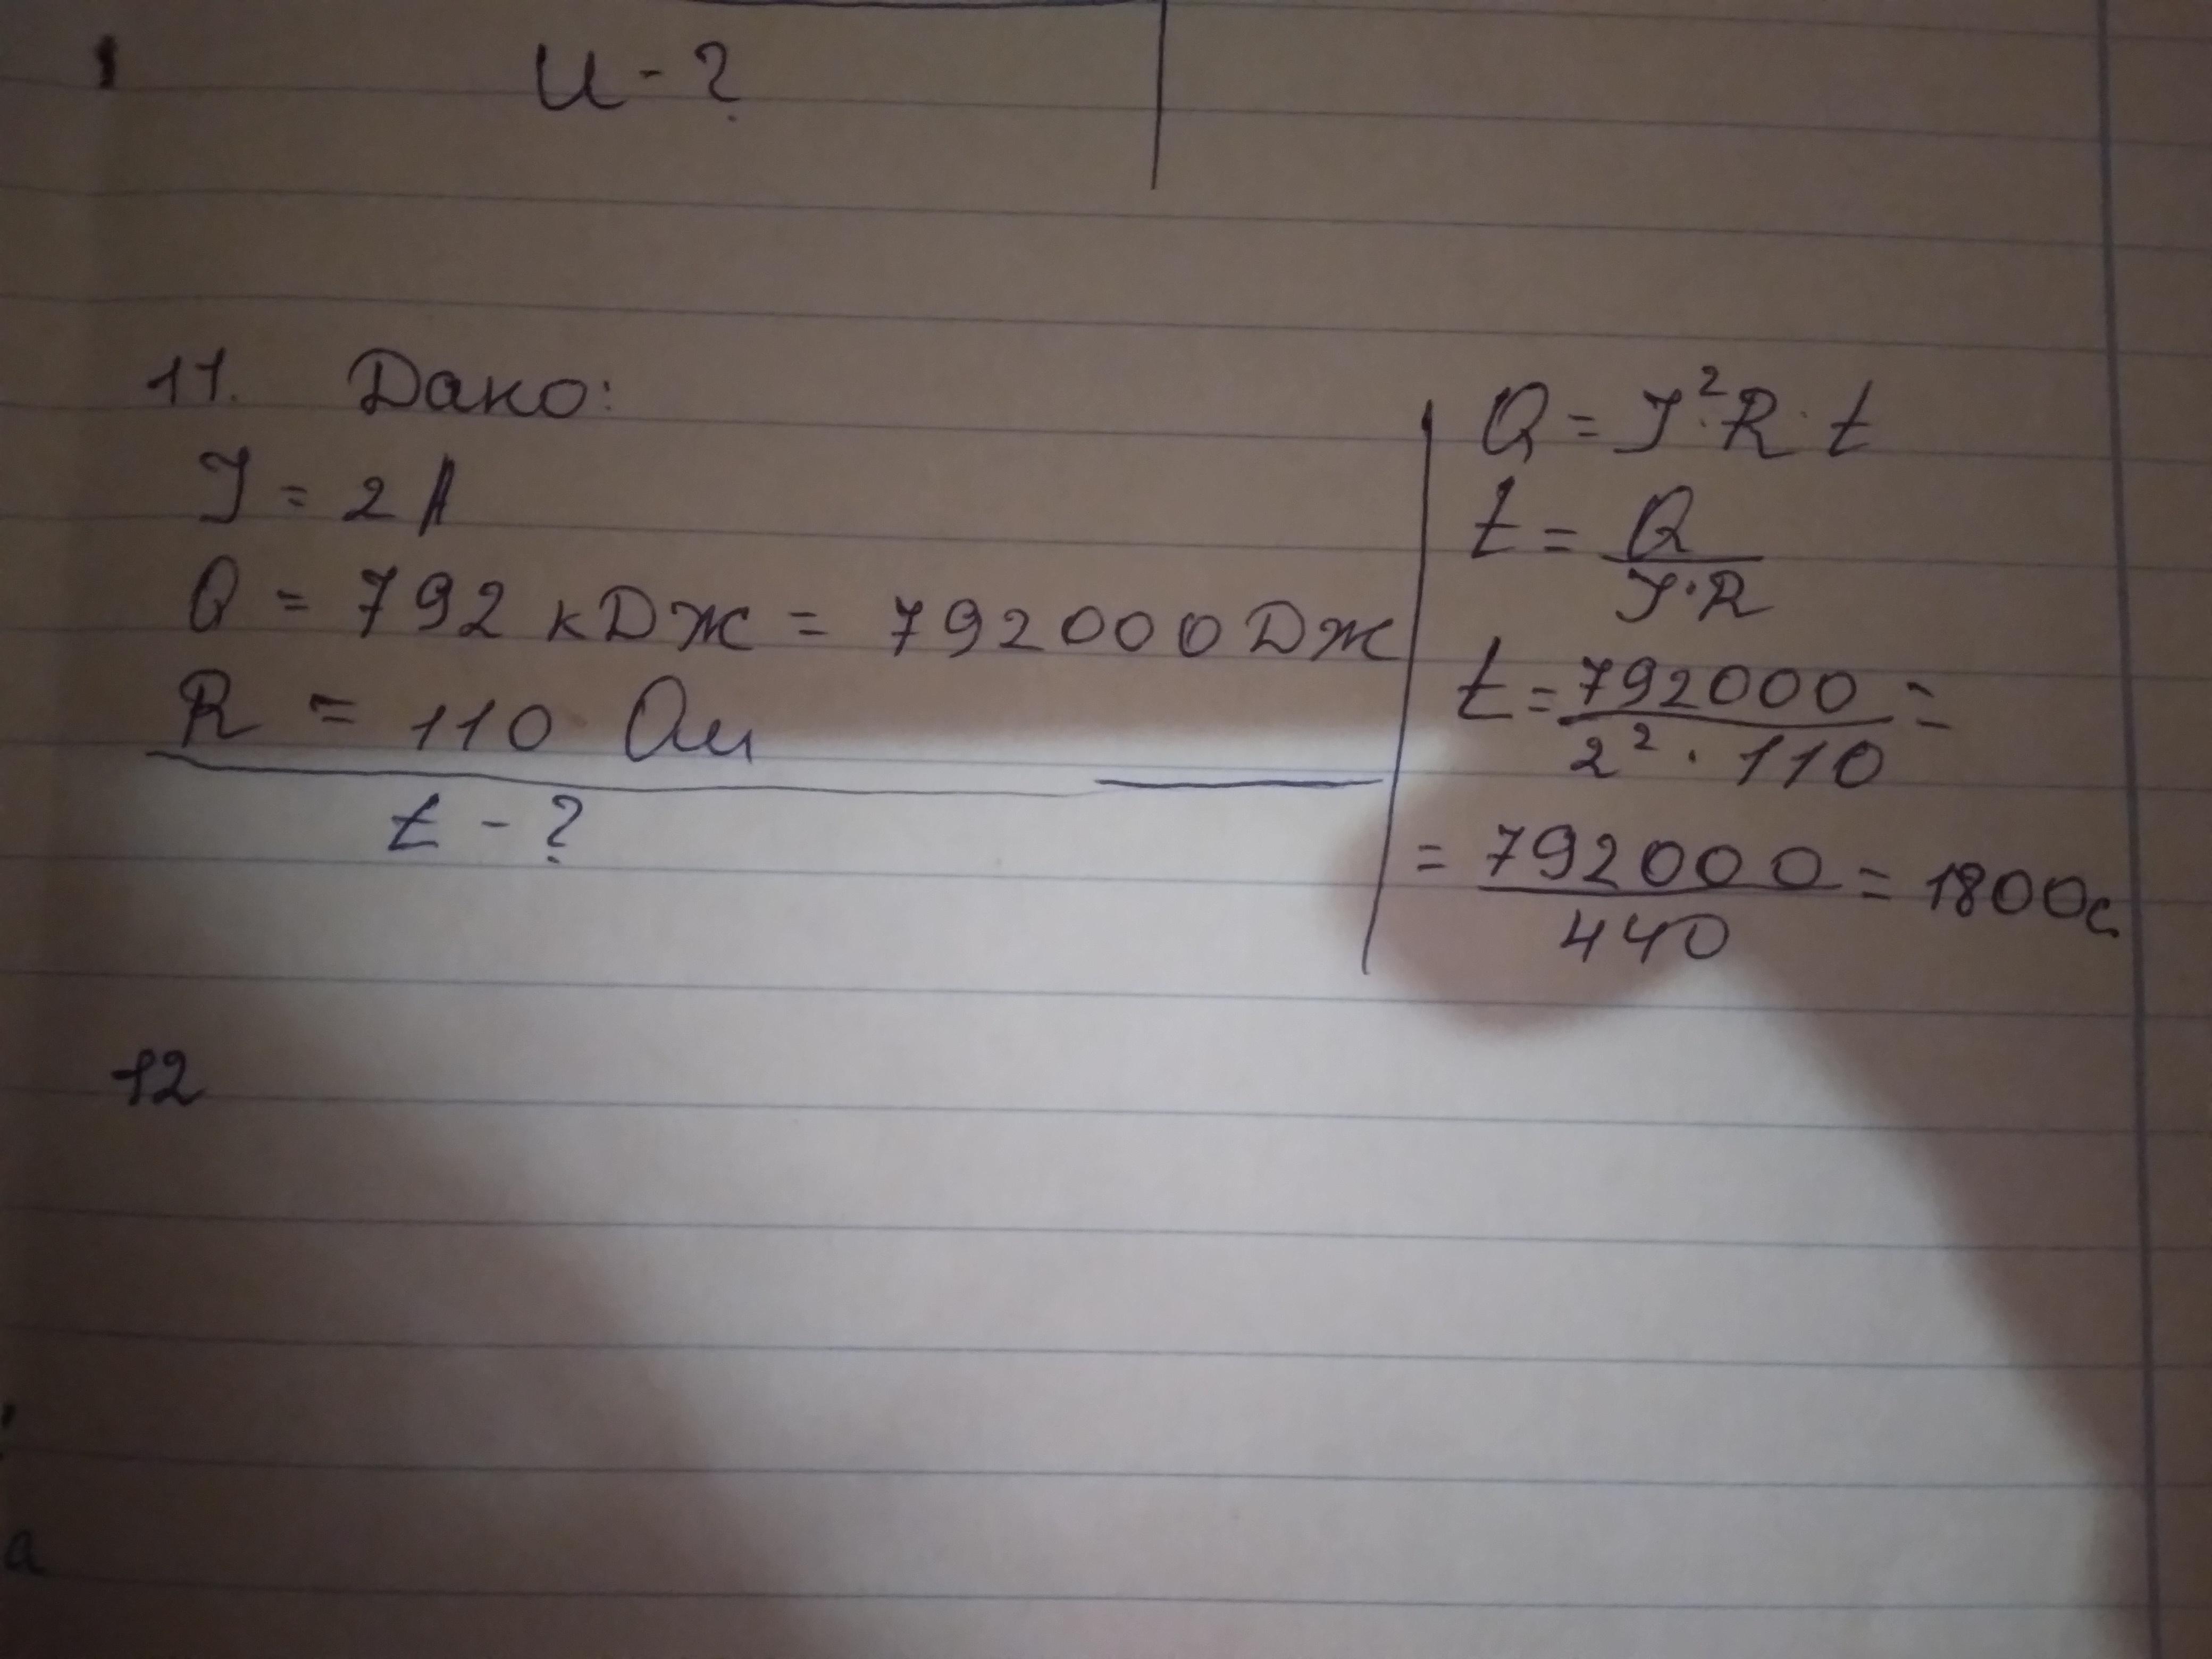 U - ?
11. Дано:
I = 2 А
Q = 792 кДж = 792000 Дж
R = 110 Ом
t - ?
Q = I²·R·t
t = Q / I·R
t = 792000 / 2² · 110 =
= 792000 / 440 = 1800с
12
а